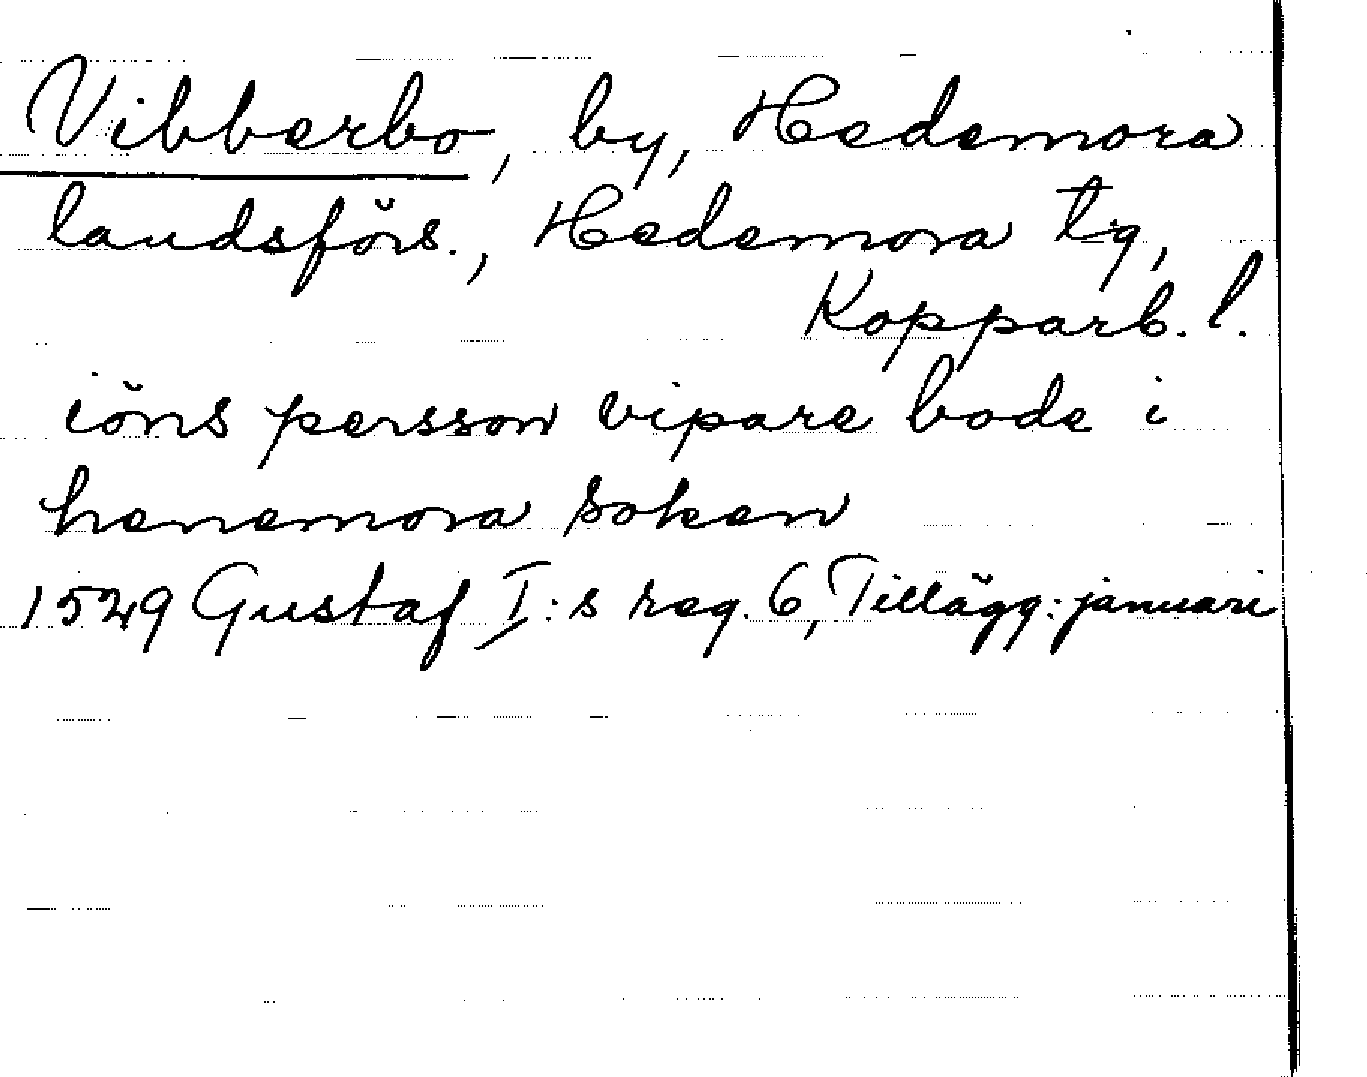 Vibberbo, by, Hedemora
landsförs., Hedemora tg,
Kopparb. l.
iöns persson vipare bode i
henemora soken
1529 Gustaf I:s reg. 6, Tillägg: januari